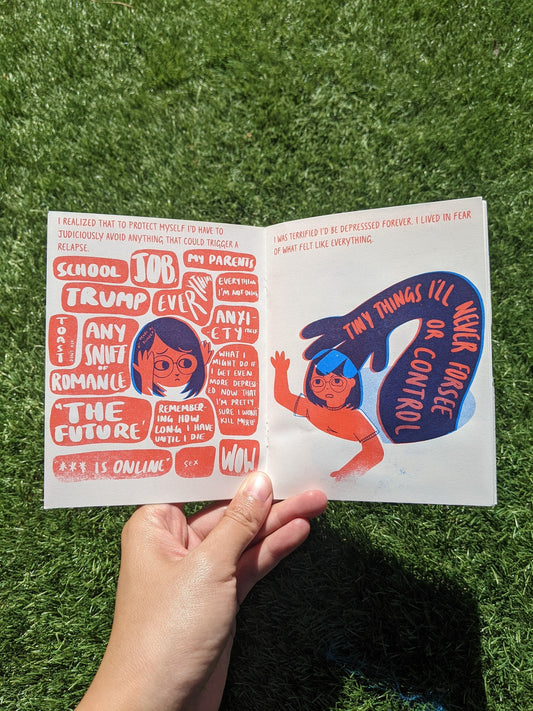 I REALIZED THAT TO PROTECT MYSELF I'D HAVE TO
JUDICIOUSLY AVOID ANYTHING THAT COULD TRIGGER A
RELAPSE.
SCHOOL
JOB,
MY PARENTS
TRUMP
EVERYTHING
EVERYTHING
I'M NOT DOING
TOAST
ANY
SNIFF
OF
ROMANCE
ANXI-
-ETY ITSELF
WHAT I
MIGHT DO IF
I GET EVEN
MORE DEPRESS
ED NOW THAT
I'M PRETTY
SURE I WON'T
KILL MYSELF
"THE
FUTURE"
REMEMBER-
ING HOW
LONG I HAVE
UNTIL I DIE
*** IS ONLINE"
SEX
WOW
I WAS TERRIFIED I'D BE DEPRESSSED FOREVER. I LIVED IN FEAR
OF WHAT FELT LIKE EVERYTHING.
TINY THINGS I'LL NEVER FORSEE
OR CONTROL